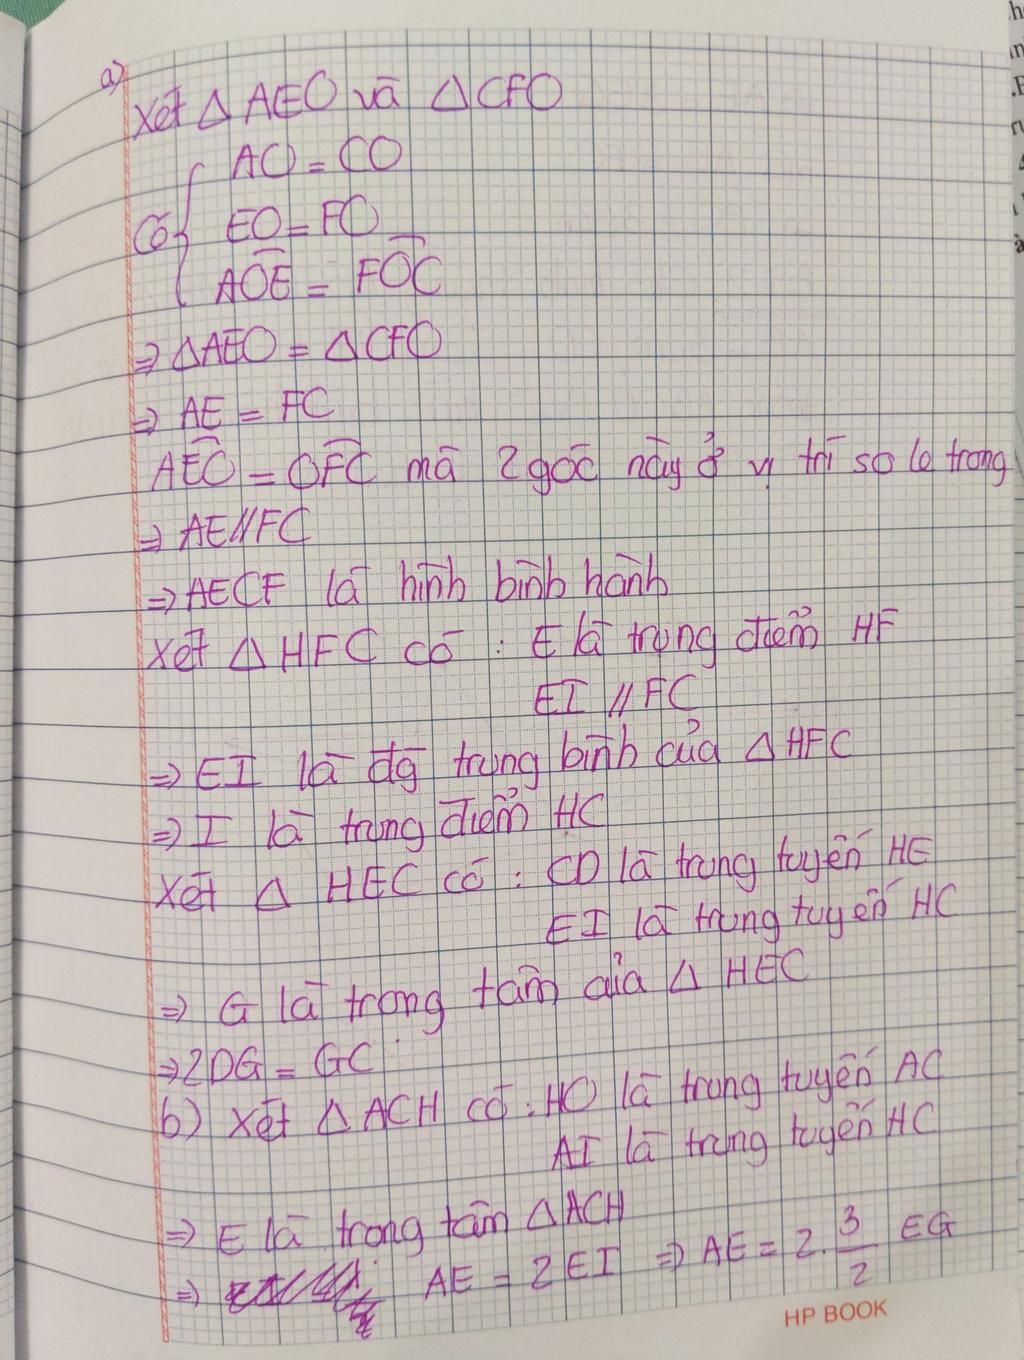 a)
Xét △ AEO và △ CFO
Có { AO = CO
EO = FO
AOE = FOC
⇒ △AEO = △CFO
⇒ AE = FC
AEO = OFC mà 2 góc này ở vị trí so le trong
⇒ AE//FC
⇒ AECF là hình bình hành
Xét △ HFC có : E là trung điểm HF
EI // FC
⇒ EI là đg trung bình của △ HFC
⇒ I là trung điểm HC
Xét △ HEC có : CD là trung tuyến HE
EI là trung tuyến HC
⇒ G là trong tâm của △ HEC
⇒ 2DG = GC
b) Xét △ ACH có : HO là trung tuyến AC
AI là trung tuyến HC
⇒ E là trong tâm △ACH
⇒ AE = 2EI ⇒ AE = 2. 3/2 EG
HP BOOK